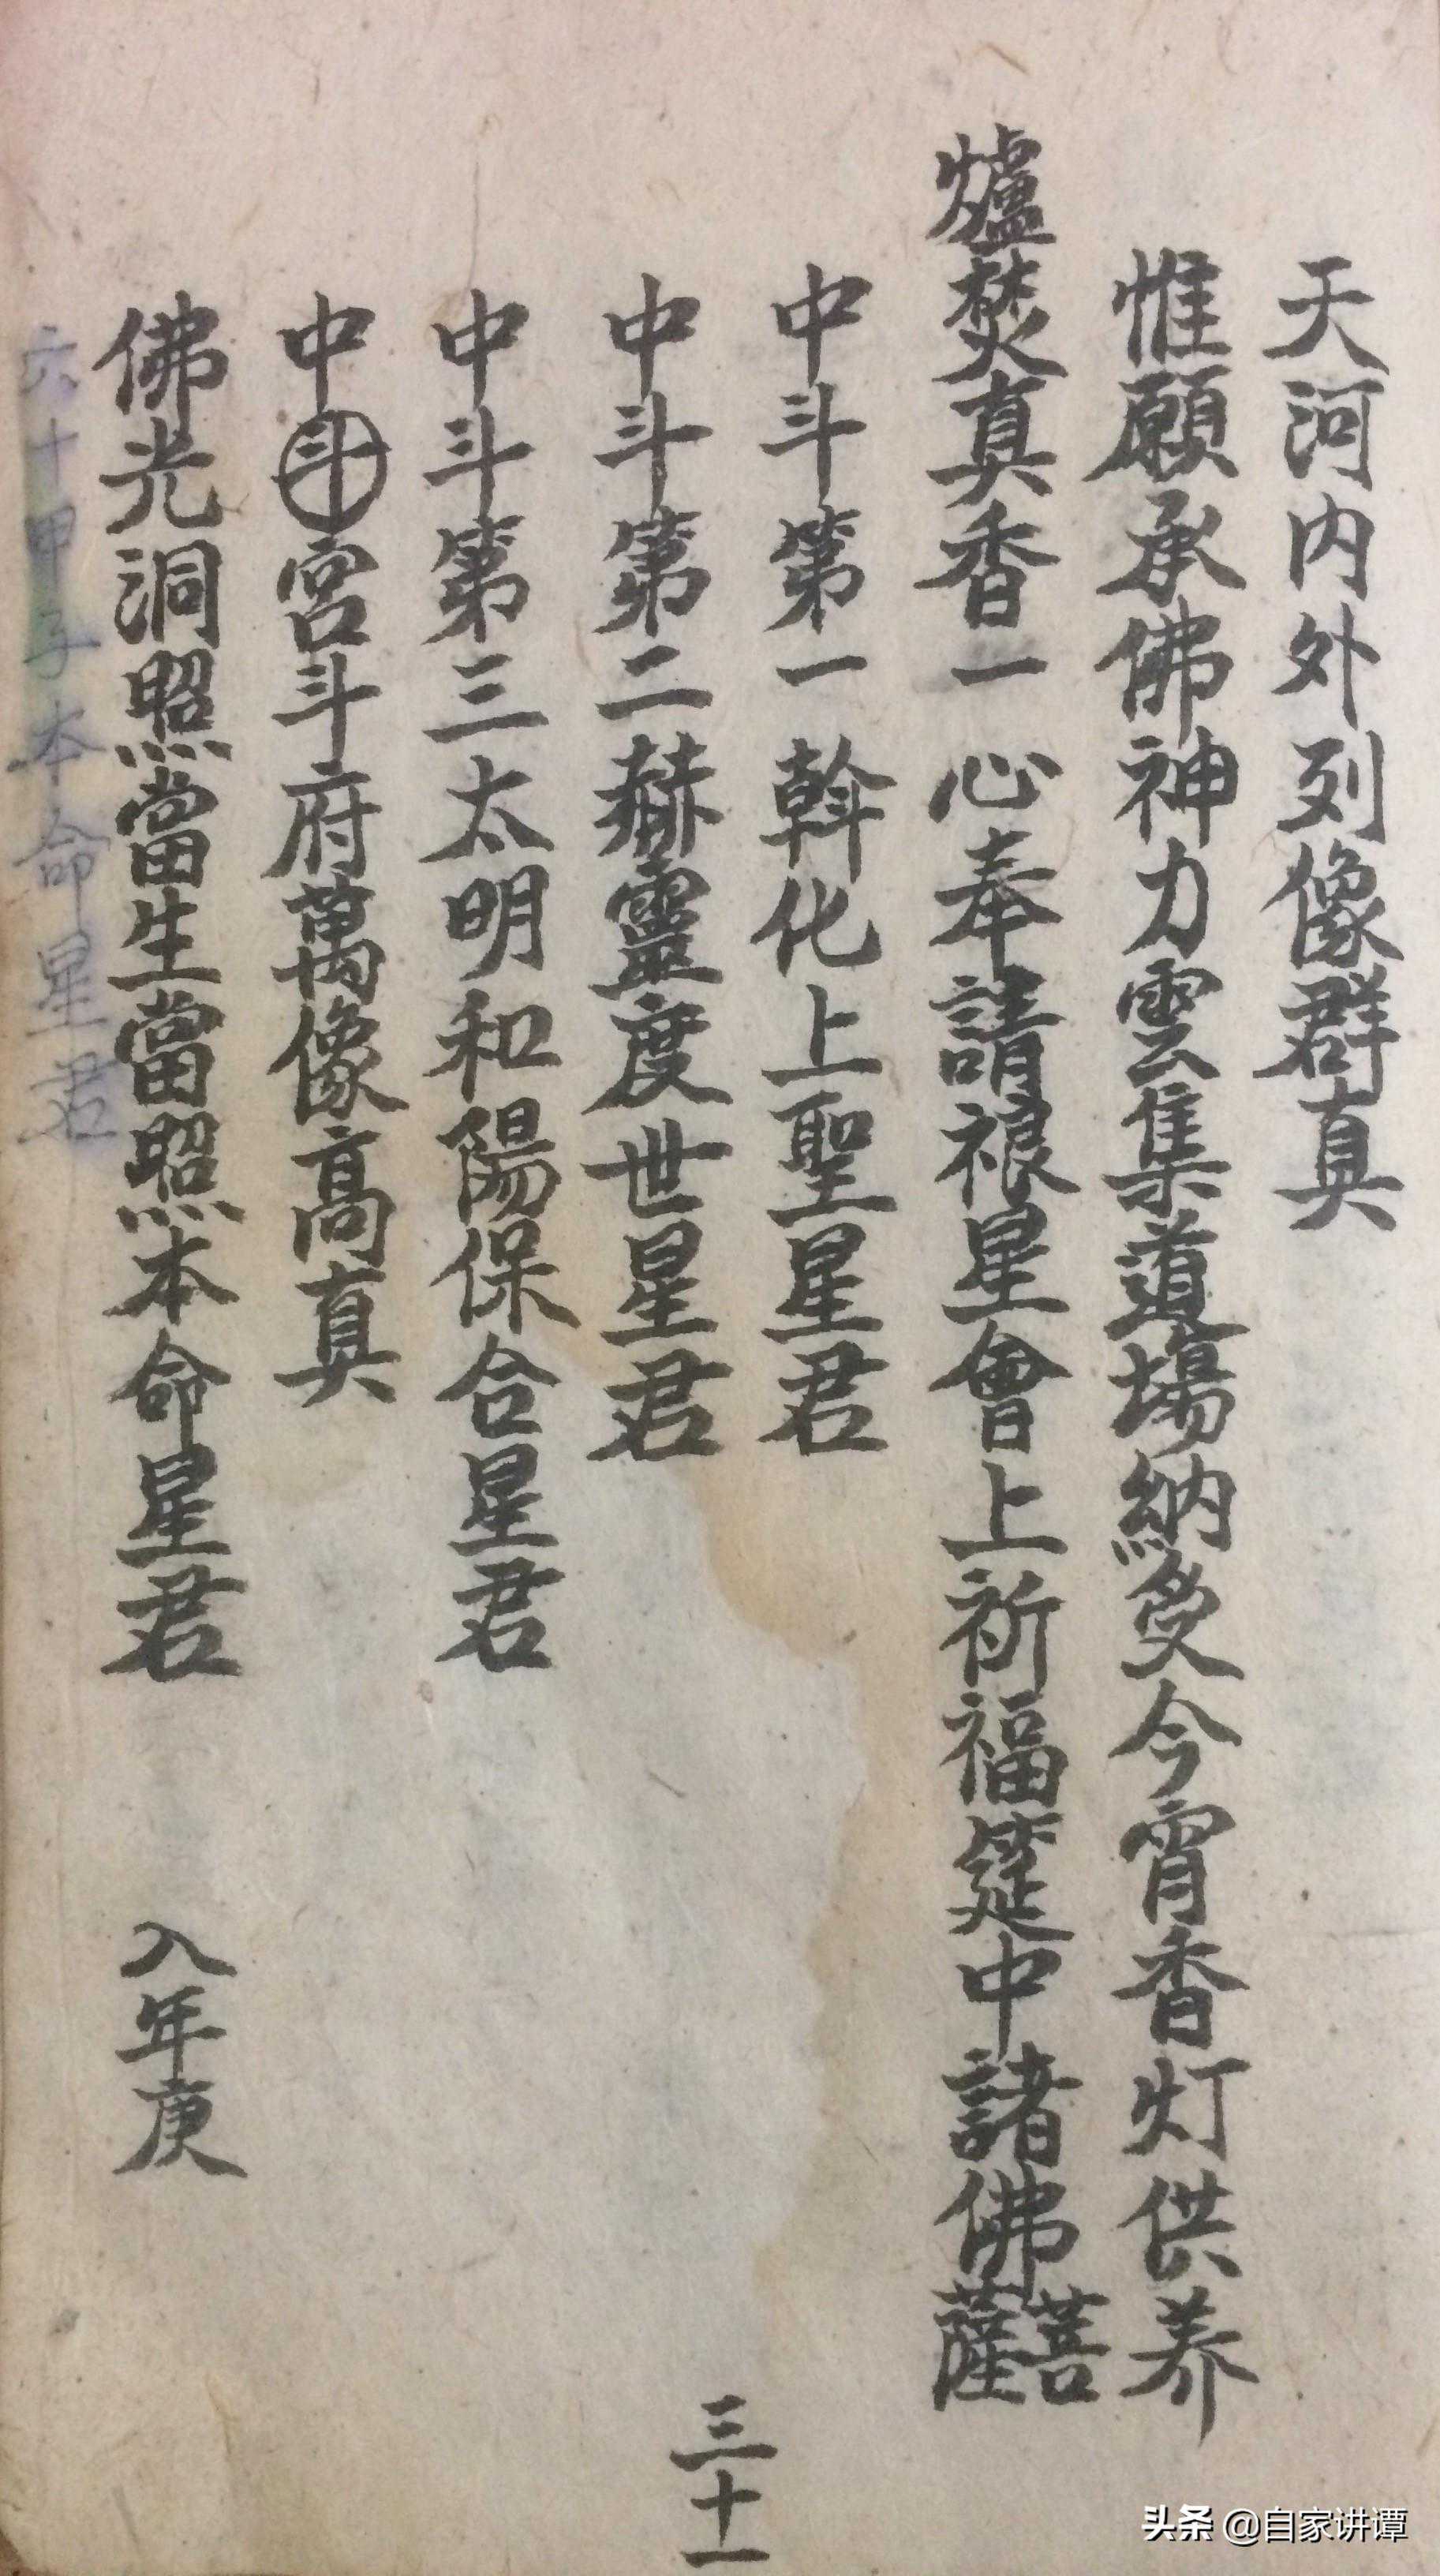 天河内外列像群真
惟願承佛神力雲集道場納受今宵香灯供养
爐焚真香一心奉請禄星會上祈福筵中諸佛菩薩
中斗第一斡化上聖星君
中斗第二赫靈度世星君
中斗第三太明和陽保合星君
中斗宮斗府萬像高真
佛光洞照當生當照本命星君 入年庚
六十甲子本命星君
三十一
头条 @自家讲谭